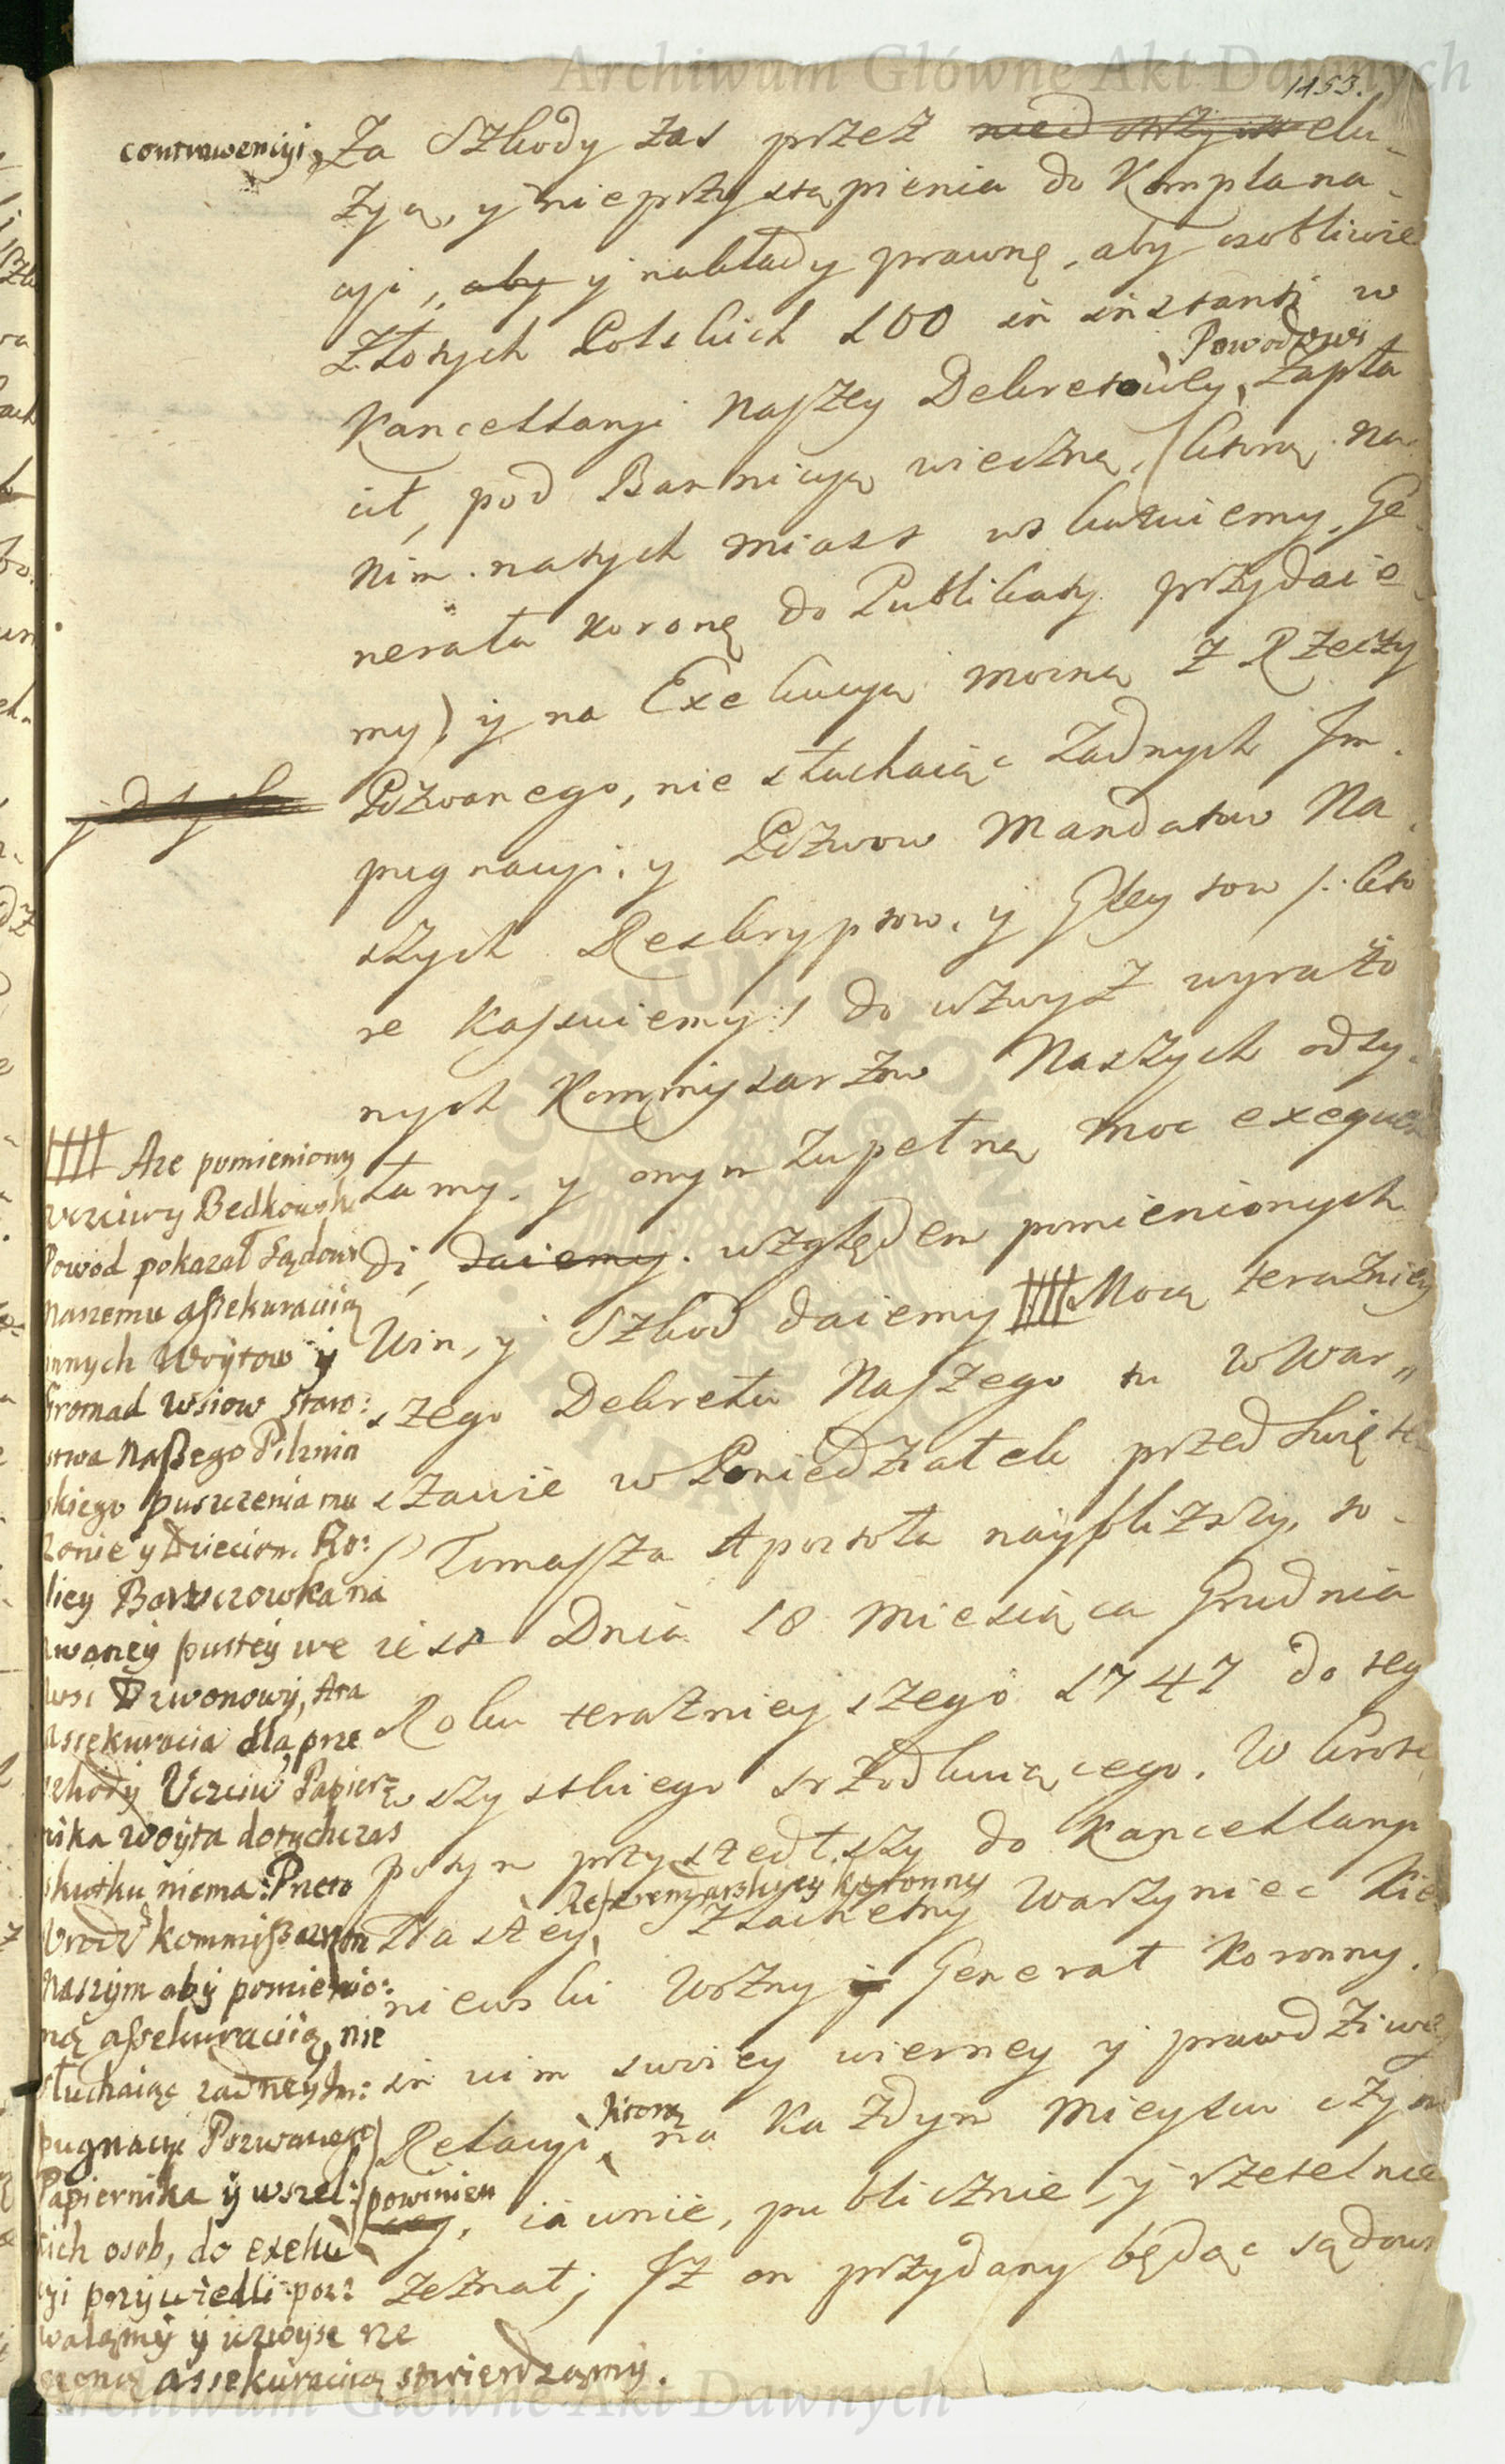 Archiwum Główne Akt Dawnych
1453.
contrawencyi,
Za Szkody zas przez elu-
zyą, y nieprzystąpienia do Komplana-
cyi, aby y nakłady prawnę, aby osobliwie
Złotych Polskich 100 in instanti w
Kancellaryi Naszey Dekretowey, Powodowi Zapła
cił, pod Bannicyą wieczną, (ktorą na
nim natych miast wskazuiemy, Ge-
nerała Koronę do Publikaty przydaie
my) y na Exekucyą mocną Z Rzeczy
Pozwanego, nie słuchaiąc Zadnych Im-
pugnacyi, y Pozwow Mandatow Na-
szych Reskryptow, y Gleytow /: kto
re Kassuiemy :/ do wzwyż wyrażo
nych Kommissarzow Naszych odsy-
łamy, y onym Zupełną moc exequen
di, daiemy. względem pomienionych
Win, y Szkod daiemy Mocą teraźniey
szego Dekretu Naszego tu w War„
szawie w Poniedziałek przed Swięte
S Tomasza Apostoła nayblizszy, to-
iest Dnia 18 Miesiąca Grudnia
Roku teraznieyszego 1747 do tey
wszystkiego srzodkuiącego. W krotce
potym przyszedłszy do Kancellaryi
Naszey, Referendarskiey Koronny Szlachetny Warzyniec Kie
niewski Wozny y Generał Koronny.
in vim swoiey wierney y prawdziwey
Relacyi, ktorą na Kazdym Mieyscu czyni
powinien iawnie, publicznie, y rzetelnie
zeznał; Iz on przydany będąc sądowi
Aze pomieniony
Uczciwy Bedkowski
Powod pokazał Sądowi
Naszemu assekuracyią
innych Woytow y
Gromad wsiow Staro:
stwa Naßego Pilznia
skiego puszczenia mu
zonie y Dzieciom Ro:
liey Barszczowka na
zwaney pustey we
wsi Dzwonowy, Ata
assekuracia dla prze
szkody Uczciw Papier
nika woyta dotychczas
skutku niema: Przeto
Urodz kommissarzom
Naszym aby pomienio:
ną assekuracyią, nie
słuchaiąc zadney Im:
pugnacyi Pozwanego
Papiernika y wszel:
kich osob, do exeku
cyi przywiedli poz:
walamy y wzwysz rze
czoną assekuracyią stwierdzamy.
Archiwum Główne Akt Dawnych